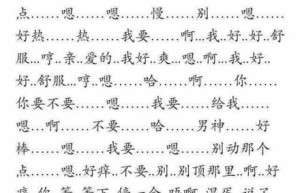 点……嗯……嗯……慢……别……嗯……
好热……热……我要……啊…我..好..好舒
服…哼..亲..爱的..我好..爽…嗯..啊..我..好..
好..舒服…哼…嗯……哈……啊……你……
你要不要……嗯……我要……给我……
嗯…啊……不要……哈……男神……好
棒……嗯……我要……嗯……别动那个
点……嗯..好痒..不要..别..别顶那里..啊..好